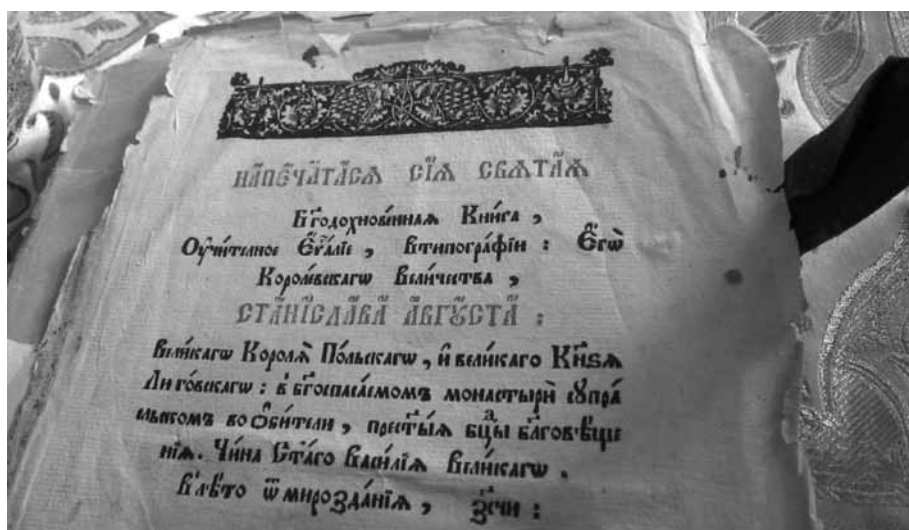 НАПЕЧАТАСѦ СІѦ СВѦТАѦ
Бг҃одохнове́ннаѧ Кни́га ,
Оу҆чи́телное Єѵ҃аліе , втипогра́фіи : Єгѡ̀
Короле́вскагѡ Вели́чества ,
СТАНІСЛАВА АВГꙊСТА :
Вели́кагѡ Королѧ̀ По́льскагѡ , и҆ вели́каго Кнѧ҃зѧ
Ли товскагѡ : в бг҃оспаса́емомъ монастырѝ супра́
сльскомъ во ѻ҆би́тели , прест҃ы́ѧ бцⷣы бл҃говѣще
ніѧ . Чи́на Ст҃а́го Васи́ліѧ Вели́кагѡ .
В лѣ́то ѿ мирозда́ніѧ ,